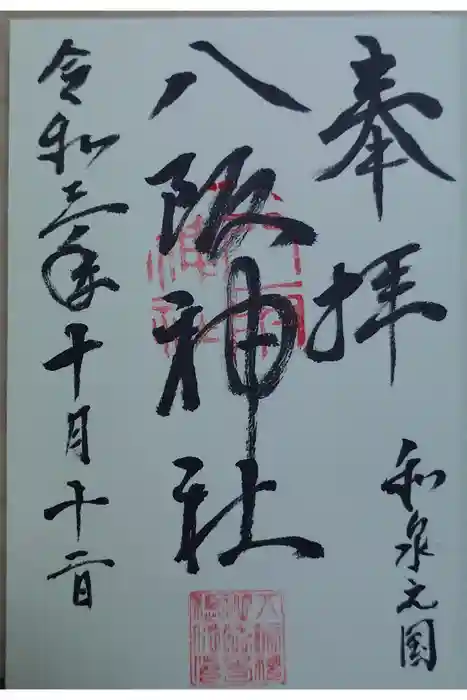 奉拝
和泉之国
八阪神社
令和三年十月十二日